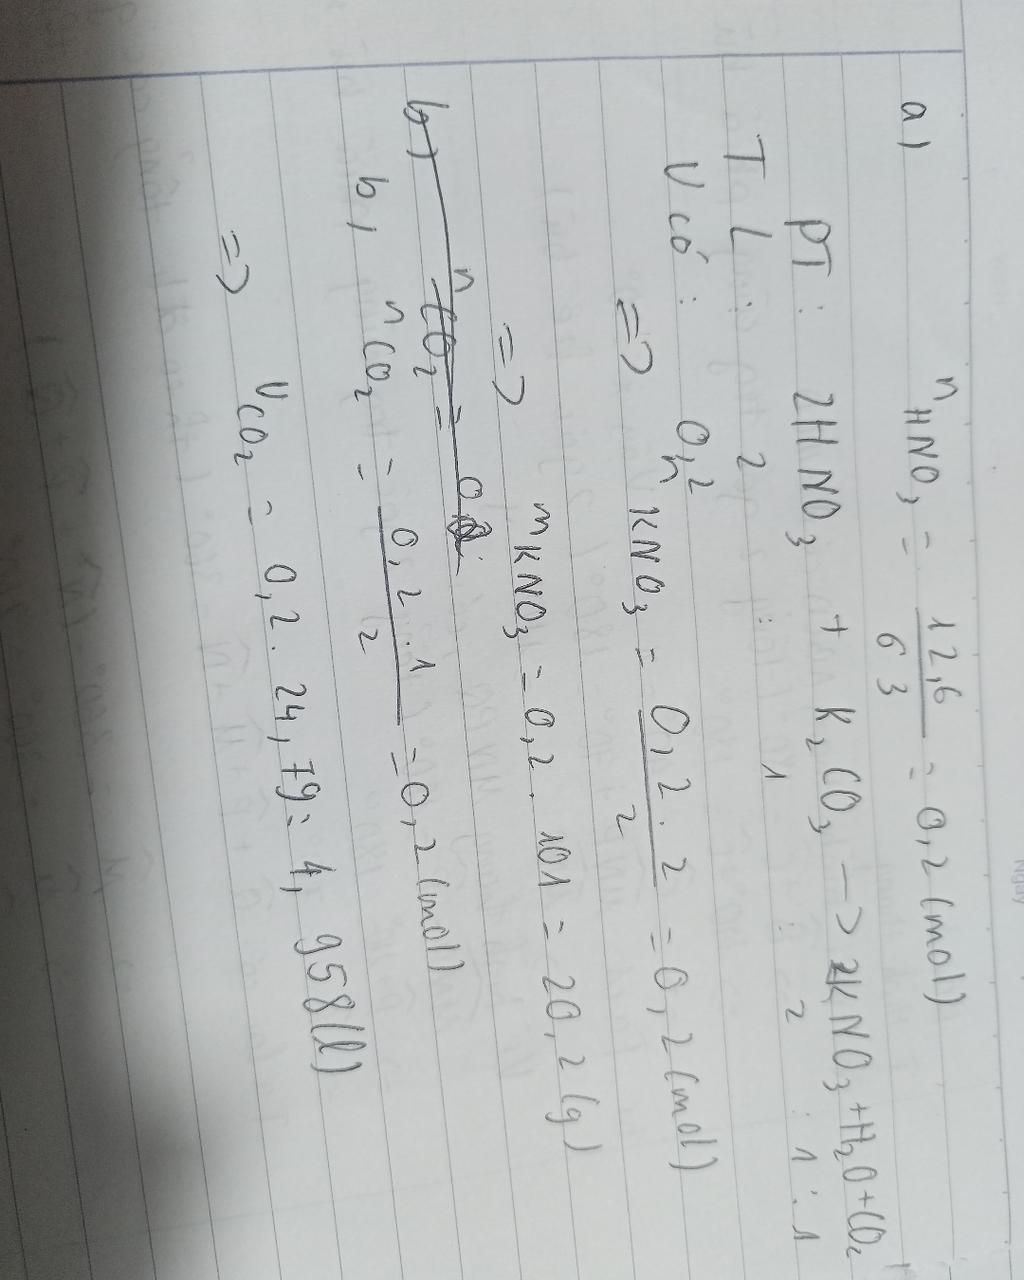 a) nHNO₃ = 12,6 / 63 = 0,2 (mol)
PT : 2HNO₃ + K₂CO₃ -> 2KNO₃ + H₂O + CO₂
TL : 2 : 1 : 2 : 1 : 1
V có : 0,2
=> nKNO₃ = 0,2 . 2 / 2 = 0,2 (mol)
=> mKNO₃ = 0,2 . 101 = 20,2 (g)
b) nCO₂ = 0
b, nCO₂ = 0,2 . 1 / 2 = 0,2 (mol)
=> VCO₂ = 0,2 . 24,79 = 4,958 (l)